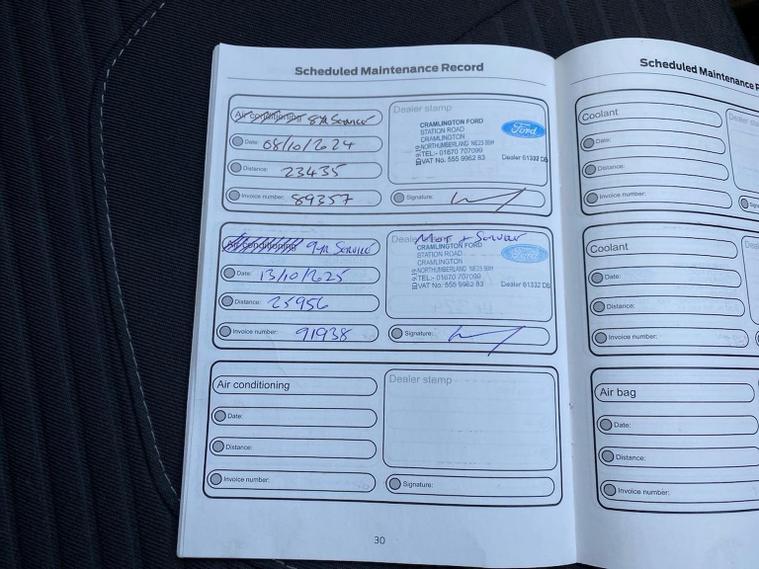 Scheduled Maintenance Record
Air conditioning 8YR SERVICE
Date: 08/10/2024
Distance: 23435
Invoice number: 89357
Dealer stamp
CRAMLINGTON FORD
STATION ROAD
CRAMLINGTON
NORTHUMBERLAND NE23 8BH
TEL:- 01670 707099
VAT No: 555 9962 83
Dealer 61332 DB
Ford
Signature:
Air conditioning 9YR SERVICE
Date: 13/10/2025
Distance: 25956
Invoice number: 91938
Dealer MOT + SERVICE
CRAMLINGTON FORD
STATION ROAD
CRAMLINGTON
NORTHUMBERLAND NE23 8BH
TEL:- 01670 707099
VAT No: 555 9962 83
Dealer 61332 DB
Ford
Signature:
Air conditioning
Date:
Distance:
Invoice number:
Dealer stamp
Signature:
30
Scheduled Maintenance
Coolant
Date:
Distance:
Invoice number:
Coolant
Date:
Distance:
Invoice number:
Air bag
Date:
Distance:
Invoice number: